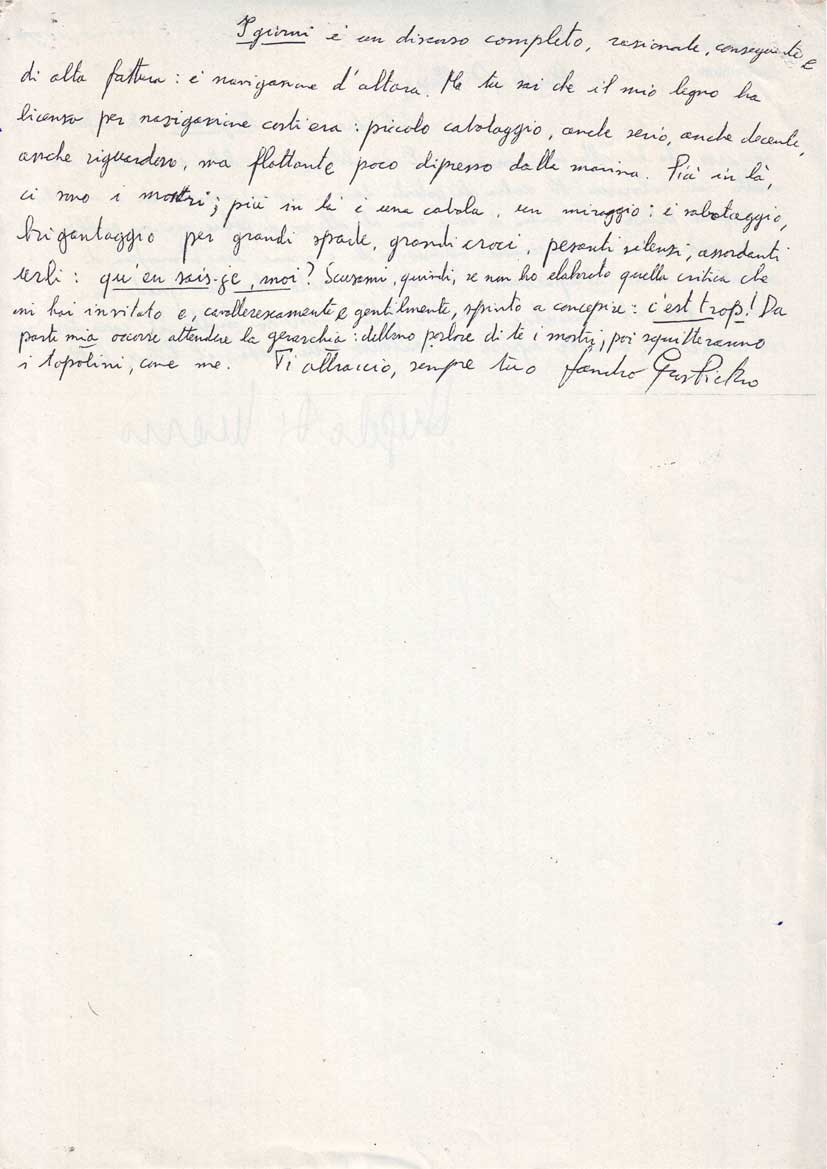 I giorni è un discorso completo, razionale, conseguente e
di alta fattura: è navigazione d'altura. Ma tu sai che il mio legno ha
licenza per navigazione costiera: piccolo cabotaggio, anche serio, anche decente,
anche riguardoso, ma flottante poco dipresso dalla marina. Più in là,
ci sono i mostri; più in là è una cabala, un miraggio: è sabotaggio,
brigantaggio per grandi spade, grandi croci, pesanti silenzi, assordanti
verbi: qu'en sais-je, moi? Scusami, quindi, se non ho elaborato quella critica che
mi hai invitato e, cavallerescamente e gentilmente, spinto a concepire: c'est trop! Da
parte mia occorre attendere la gerarchia: debbono parlare di te i mostri, poi squitteranno
i topolini, come me. Ti abbraccio, sempre tuo Sandro